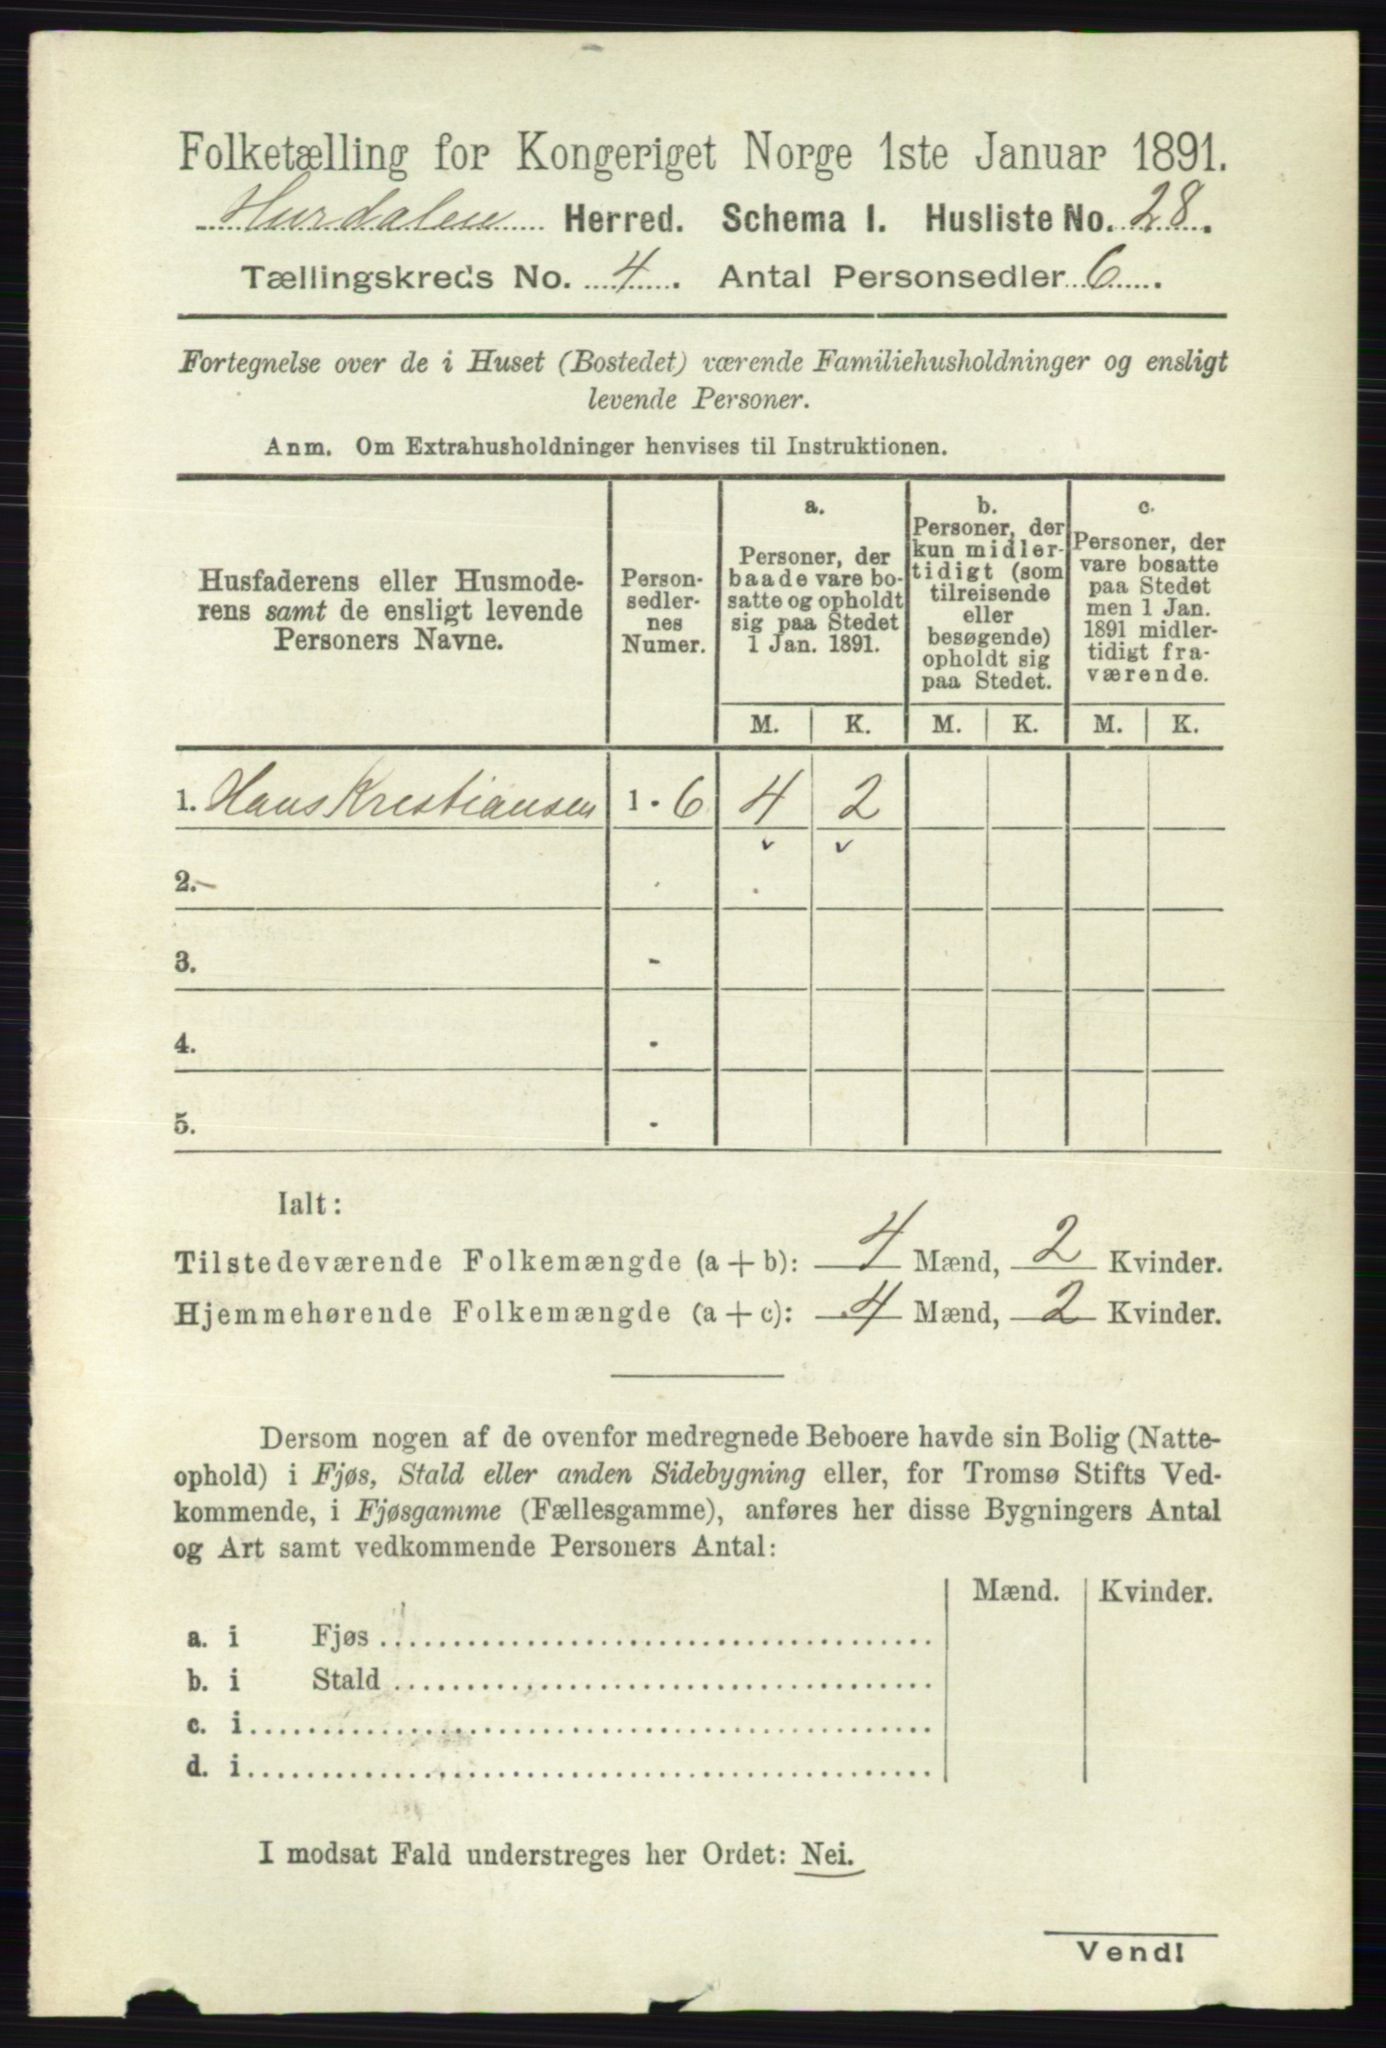 Folketælling for Kongeriget Norge 1ste Januar 1891.
Hurdalen Herred. Schema I. Husliste No. 28.
Tællingskreds No. 4. Antal Personsedler 6.
Fortegnelse over de i Huset (Bostedet) værende Familiehusholdninger og ensligt
levende Personer.
Anm. Om Extrahusholdninger henvises til Instruktionen.
Husfaderens eller Husmode-
rens samt de ensligt levende
Personers Navne.
Person-
sedler-
nes
Numer.
a.
Personer, der
baade vare bo-
satte og opholdt
sig paa Stedet
1 Jan. 1891.
b.
Personer, der
kun midler-
tidigt (som
tilreisende
eller
besøgende)
opholdt sig
paa Stedet.
c.
Personer, der
vare bosatte
paa Stedet
men 1 Jan.
1891 midler-
tidigt fra-
værende.
M. K. M. K. M. K.
1. Hans Kristiansen 1 - 6 4 2
2. -
3. -
4. -
5. -
Ialt:
Tilstedeværende Folkemængde (a + b): 4 Mænd, 2 Kvinder.
Hjemmehørende Folkemængde (a + c): 4 Mænd, 2 Kvinder.
Dersom nogen af de ovenfor medregnede Beboere havde sin Bolig (Natte-
ophold) i Fjøs, Stald eller anden Sidebygning eller, for Tromsø Stifts Ved-
kommende, i Fjøsgamme (Fællesgamme), anføres her disse Bygningers Antal
og Art samt vedkommende Personers Antal:
Mænd. Kvinder.
a. i Fjøs
b. i Stald
c. i
d. i
I modsat Fald understreges her Ordet: Nei.
Vend!